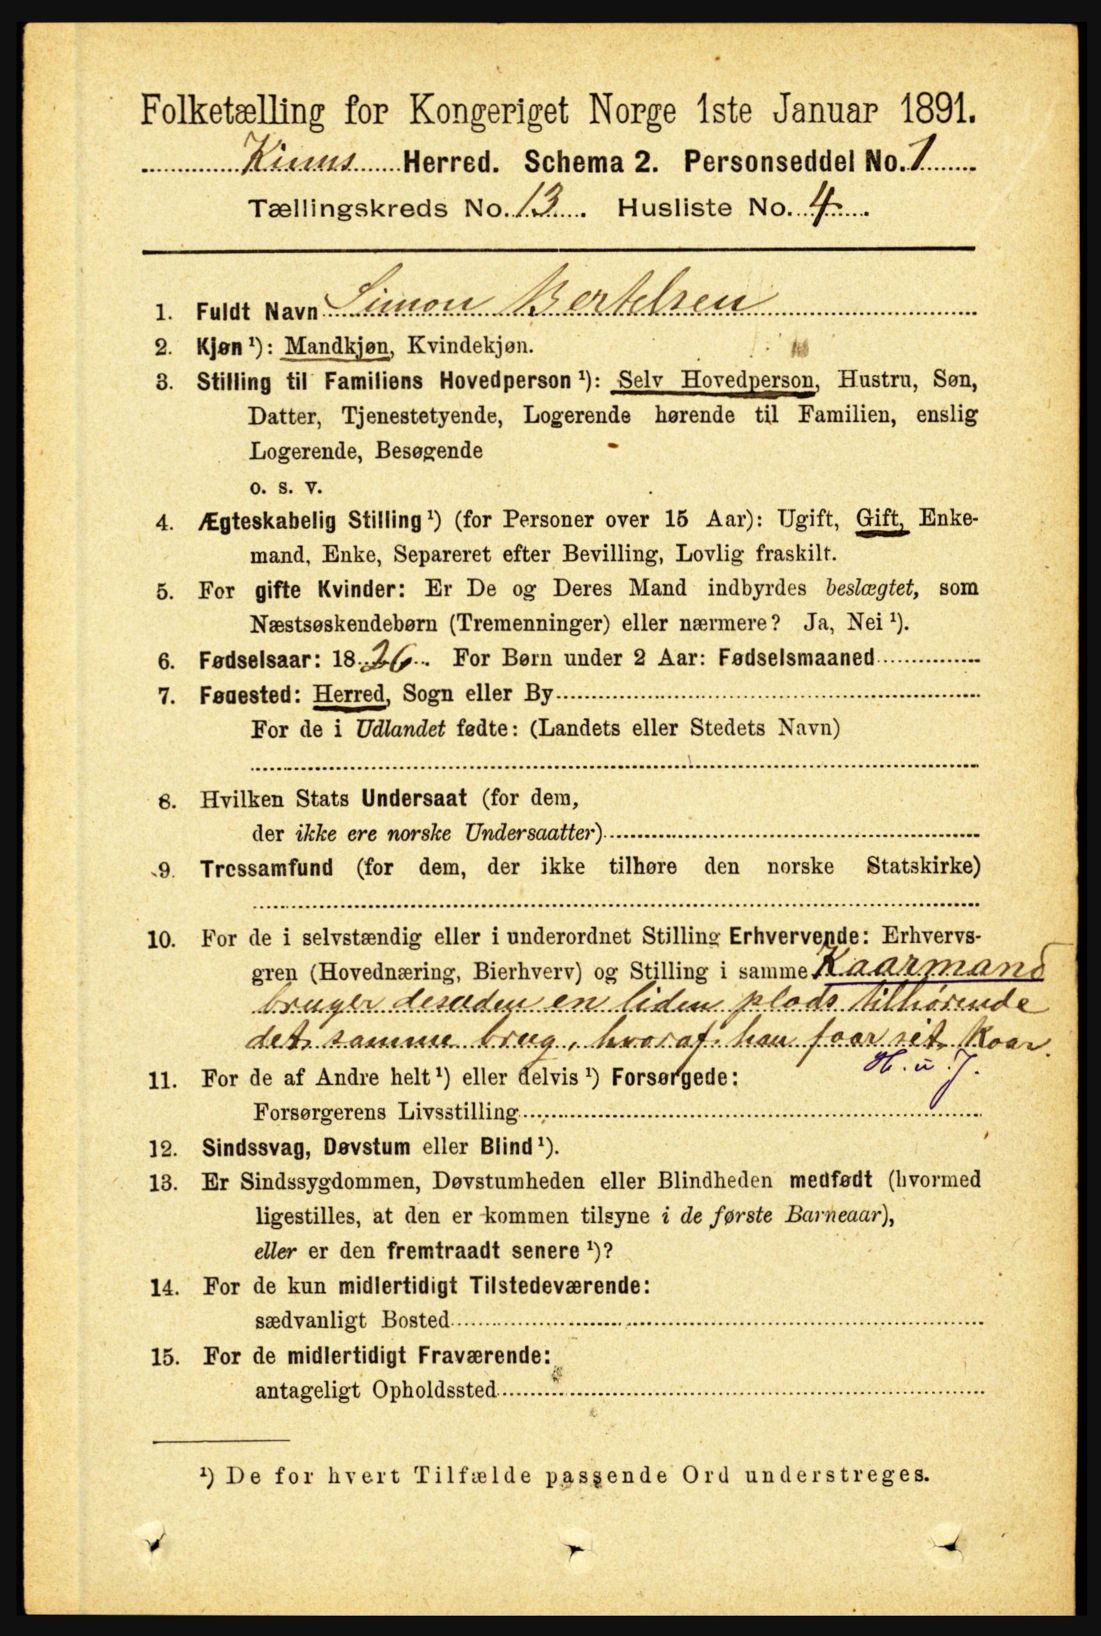 Folketælling for Kongeriget Norge 1ste Januar 1891.
Kinns Herred. Schema 2. Personseddel No. 1
Tællingskreds No. 13. Husliste No. 4.
1. Fuldt Navn Simon Bertelsen
2. Kjøn ¹): Mandkjøn, Kvindekjøn.
3. Stilling til Familiens Hovedperson ¹): Selv Hovedperson, Hustru, Søn,
Datter, Tjenestetyende, Logerende hørende til Familien, enslig
Logerende, Besøgende
o. s. v.
4. Ægteskabelig Stilling ¹) (for Personer over 15 Aar): Ugift, Gift, Enke-
mand, Enke, Separeret efter Bevilling, Lovlig fraskilt.
5. For gifte Kvinder: Er De og Deres Mand indbyrdes beslægtet, som
Næstsøskendebørn (Tremenninger) eller nærmere? Ja, Nei ¹).
6. Fødselsaar: 1826. For Børn under 2 Aar: Fødselsmaaned
7. Fødested: Herred, Sogn eller By
For de i Udlandet fødte: (Landets eller Stedets Navn)
8. Hvilken Stats Undersaat (for dem,
der ikke ere norske Undersaatter)
9. Trossamfund (for dem, der ikke tilhøre den norske Statskirke)
10. For de i selvstændig eller i underordnet Stilling Erhvervende: Erhvervs-
gren (Hovednæring, Bierhverv) og Stilling i samme Kaarmand
bruger desuden en liden plads tilhørende
det samme brug, hvoraf han faar sit Kaar.
H. u. J.
11. For de af Andre helt ¹) eller delvis ¹) Forsørgede:
Forsørgerens Livsstilling
12. Sindssvag, Døvstum eller Blind ¹).
13. Er Sindssygdommen, Døvstumheden eller Blindheden medfødt (hvormed
ligestilles, at den er kommen tilsyne i de første Barneaar),
eller er den fremtraadt senere ¹)?
14. For de kun midlertidigt Tilstedeværende:
sædvanligt Bosted
15. For de midlertidigt Fraværende:
antageligt Opholdssted
¹) De for hvert Tilfælde passende Ord understreges.